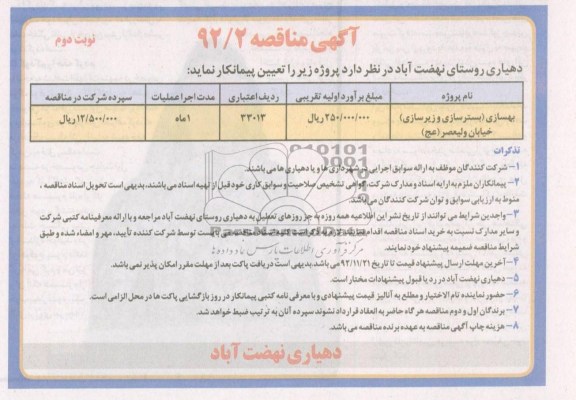 آگهی مناقصه ۹۲/۲
نوبت دوم
دهیاری روستای نهضت آباد در نظر دارد پروژه زیر را تعیین پیمانکار نماید:
نام پروژه
مبلغ برآورد اولیه تقریبی
ردیف اعتباری
مدت اجرا عملیات
سپرده شرکت در مناقصه
بهسازی (بسترسازی و زیرسازی)
خیابان ولیعصر (عج)
۲۵۰/۰۰۰/۰۰۰ ریال
۳۳۰۱۳
۱ماه
۱۲/۵۰۰/۰۰۰ ریال
تذکرات
۱- شرکت کنندگان موظف به ارائه سوابق اجرایی با شهرداری ها و یا دهیاری ها می باشند.
۲- پیمانکاران ملزم به ارایه اسناد و مدارک شرکت، گواهی تشخیص صلاحیت و سوابق کاری خود قبل از تهیه اسناد می باشند، بدیهی است تحویل اسناد مناقصه،
منوط به ارزیابی سوابق و توان شرکت کنندگان می باشد.
۳- واجدین شرایط می توانند از تاریخ نشر این اطلاعیه همه روزه به جز روزهای تعطیل به دهیاری روستای نهضت آباد مراجعه و با ارائه معرفینامه کتبی شرکت
و سایر مدارک نسبت به خرید اسناد مناقصه اقدام نمایند بایست توسط شرکت کننده تأیید، مهر و امضاء شده و طبق
شرایط مناقصه ضمیمه پیشنهاد خود نمایند.
۴- آخرین مهلت ارسال پیشنهاد قیمت تا تاریخ ۹۲/۱۱/۲۱ می باشد بدیهی است دریافت پاکت بعد از مهلت مقرر امکان پذیر نمی باشد.
۵- دهیاری نهضت آباد در رد یا قبول پیشنهادات مختار است.
۶- حضور نماینده تام الاختیار و مطلع به آنالیز قیمت پیشنهادی و با معرفی نامه کتبی پیمانکار در روز بازگشایی پاکت ها در محل الزامی است.
۷- برندگان اول و دوم مناقصه هر گاه حاضر به انعقاد قرارداد نشوند سپرده آنان به ترتیب ضبط خواهد شد.
۸- هزینه چاپ آگهی مناقصه به عهده برنده مناقصه می باشد.
دهیاری نهضت آباد